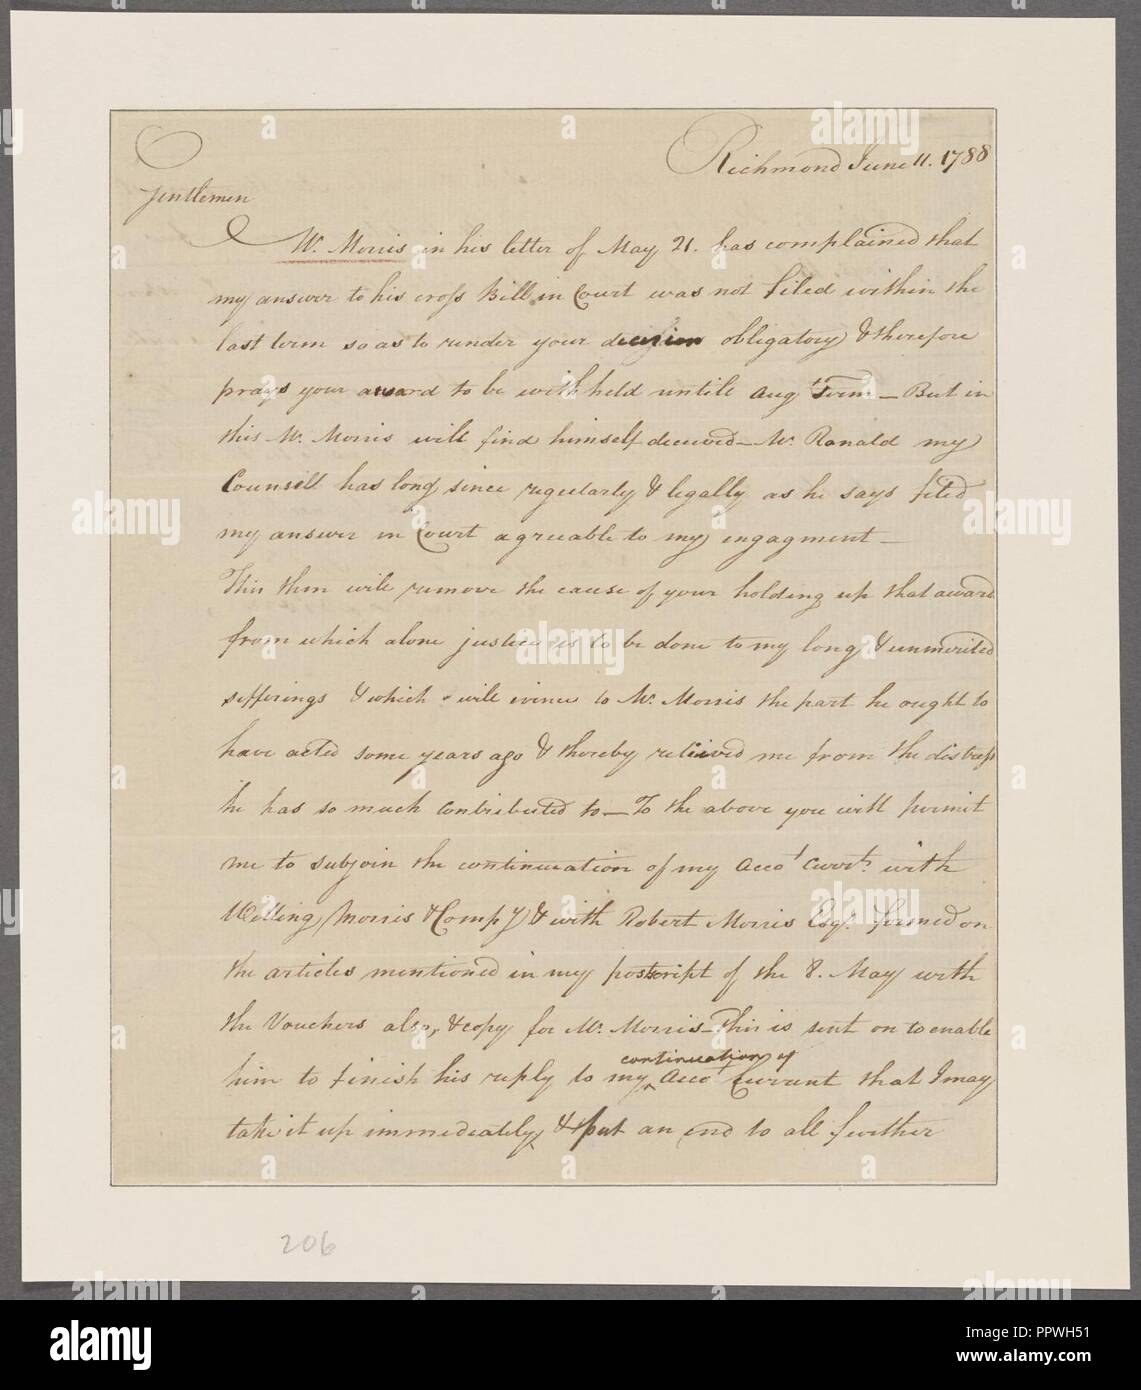 Richmond June 11. 1788
Gentlemen
Mr. Morris in his letter of May 21. has complained that
my answer to his cross Bill in Court was not filed within the
last term so as to render your decision obligatory & therefore
prays your award to be withheld untill Augt. Term — But in
this Mr. Morris will find himself deceived — Mr. Ronald my
Counsell has long since regularly & legally as he says filed
my answer in Court agreable to my engagment —
This then will remove the cause of your holding up that award
from which alone justice is to be done to my long & unmerited
sufferings & which will evince to Mr. Morris the part he ought to
have acted some years ago & thereby relieved me from the distress
he has so much contributed to — To the above you will permit
me to subjoin the continuation of my Accot. Currt. with
Willing, Morris & Compy & with Robert Morris Esqr. formed on
the articles mentioned in my postscript of the 8. May with
the Vouchers also, & copy for Mr. Morris — This is sent on to enable
continuation of
him to finish his reply to my ^ Accot Currant that I may
take it up immediately, & put an end to all further
206
alamy
Image ID: PPWH51
www.alamy.com